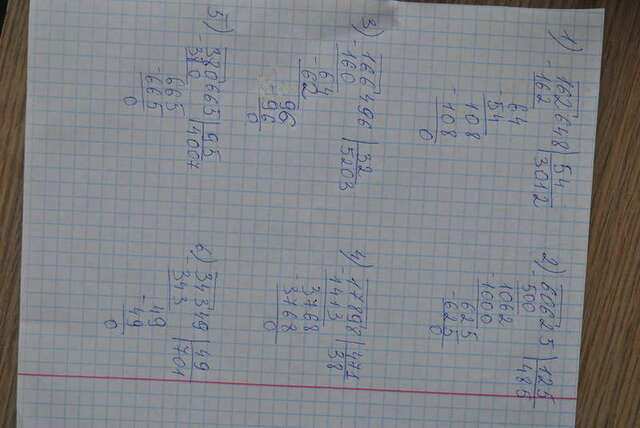 1) 162648 | 54
- 162 | 3012
64
- 54
108
- 108
0
2) 60625 | 125
- 500 | 485
1062
- 1000
625
- 625
0
3) 166496 | 32
- 160 | 5203
64
- 62
96
- 96
0
4) 17898 | 471
- 1413 | 38
3768
- 3768
0
5) 380665 | 95
- 380 | 4007
665
- 665
0
6) 34349 | 49
- 343 | 701
49
- 49
0